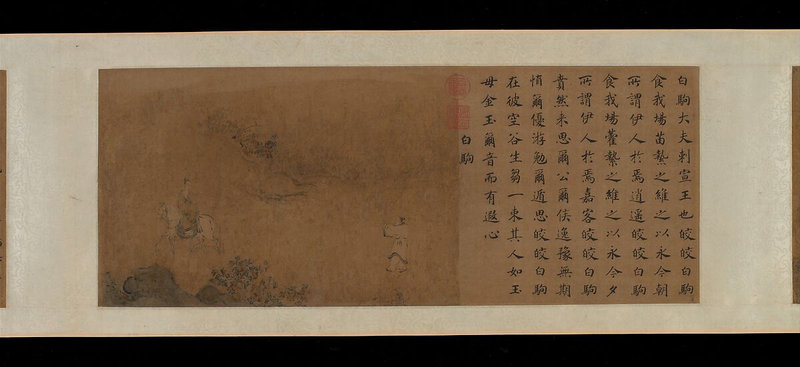 白駒大夫刺宣王也皎皎白駒
食我場苗縶之維之以永今朝
所謂伊人於焉逍遥皎皎白駒
食我場藿縶之維之以永今夕
所謂伊人於焉嘉客皎皎白駒
賁然来思爾公爾侯逸豫無期
慎爾優游勉爾遁思皎皎白駒
在彼空谷生芻一束其人如玉
毋金玉爾音而有遐心
白駒